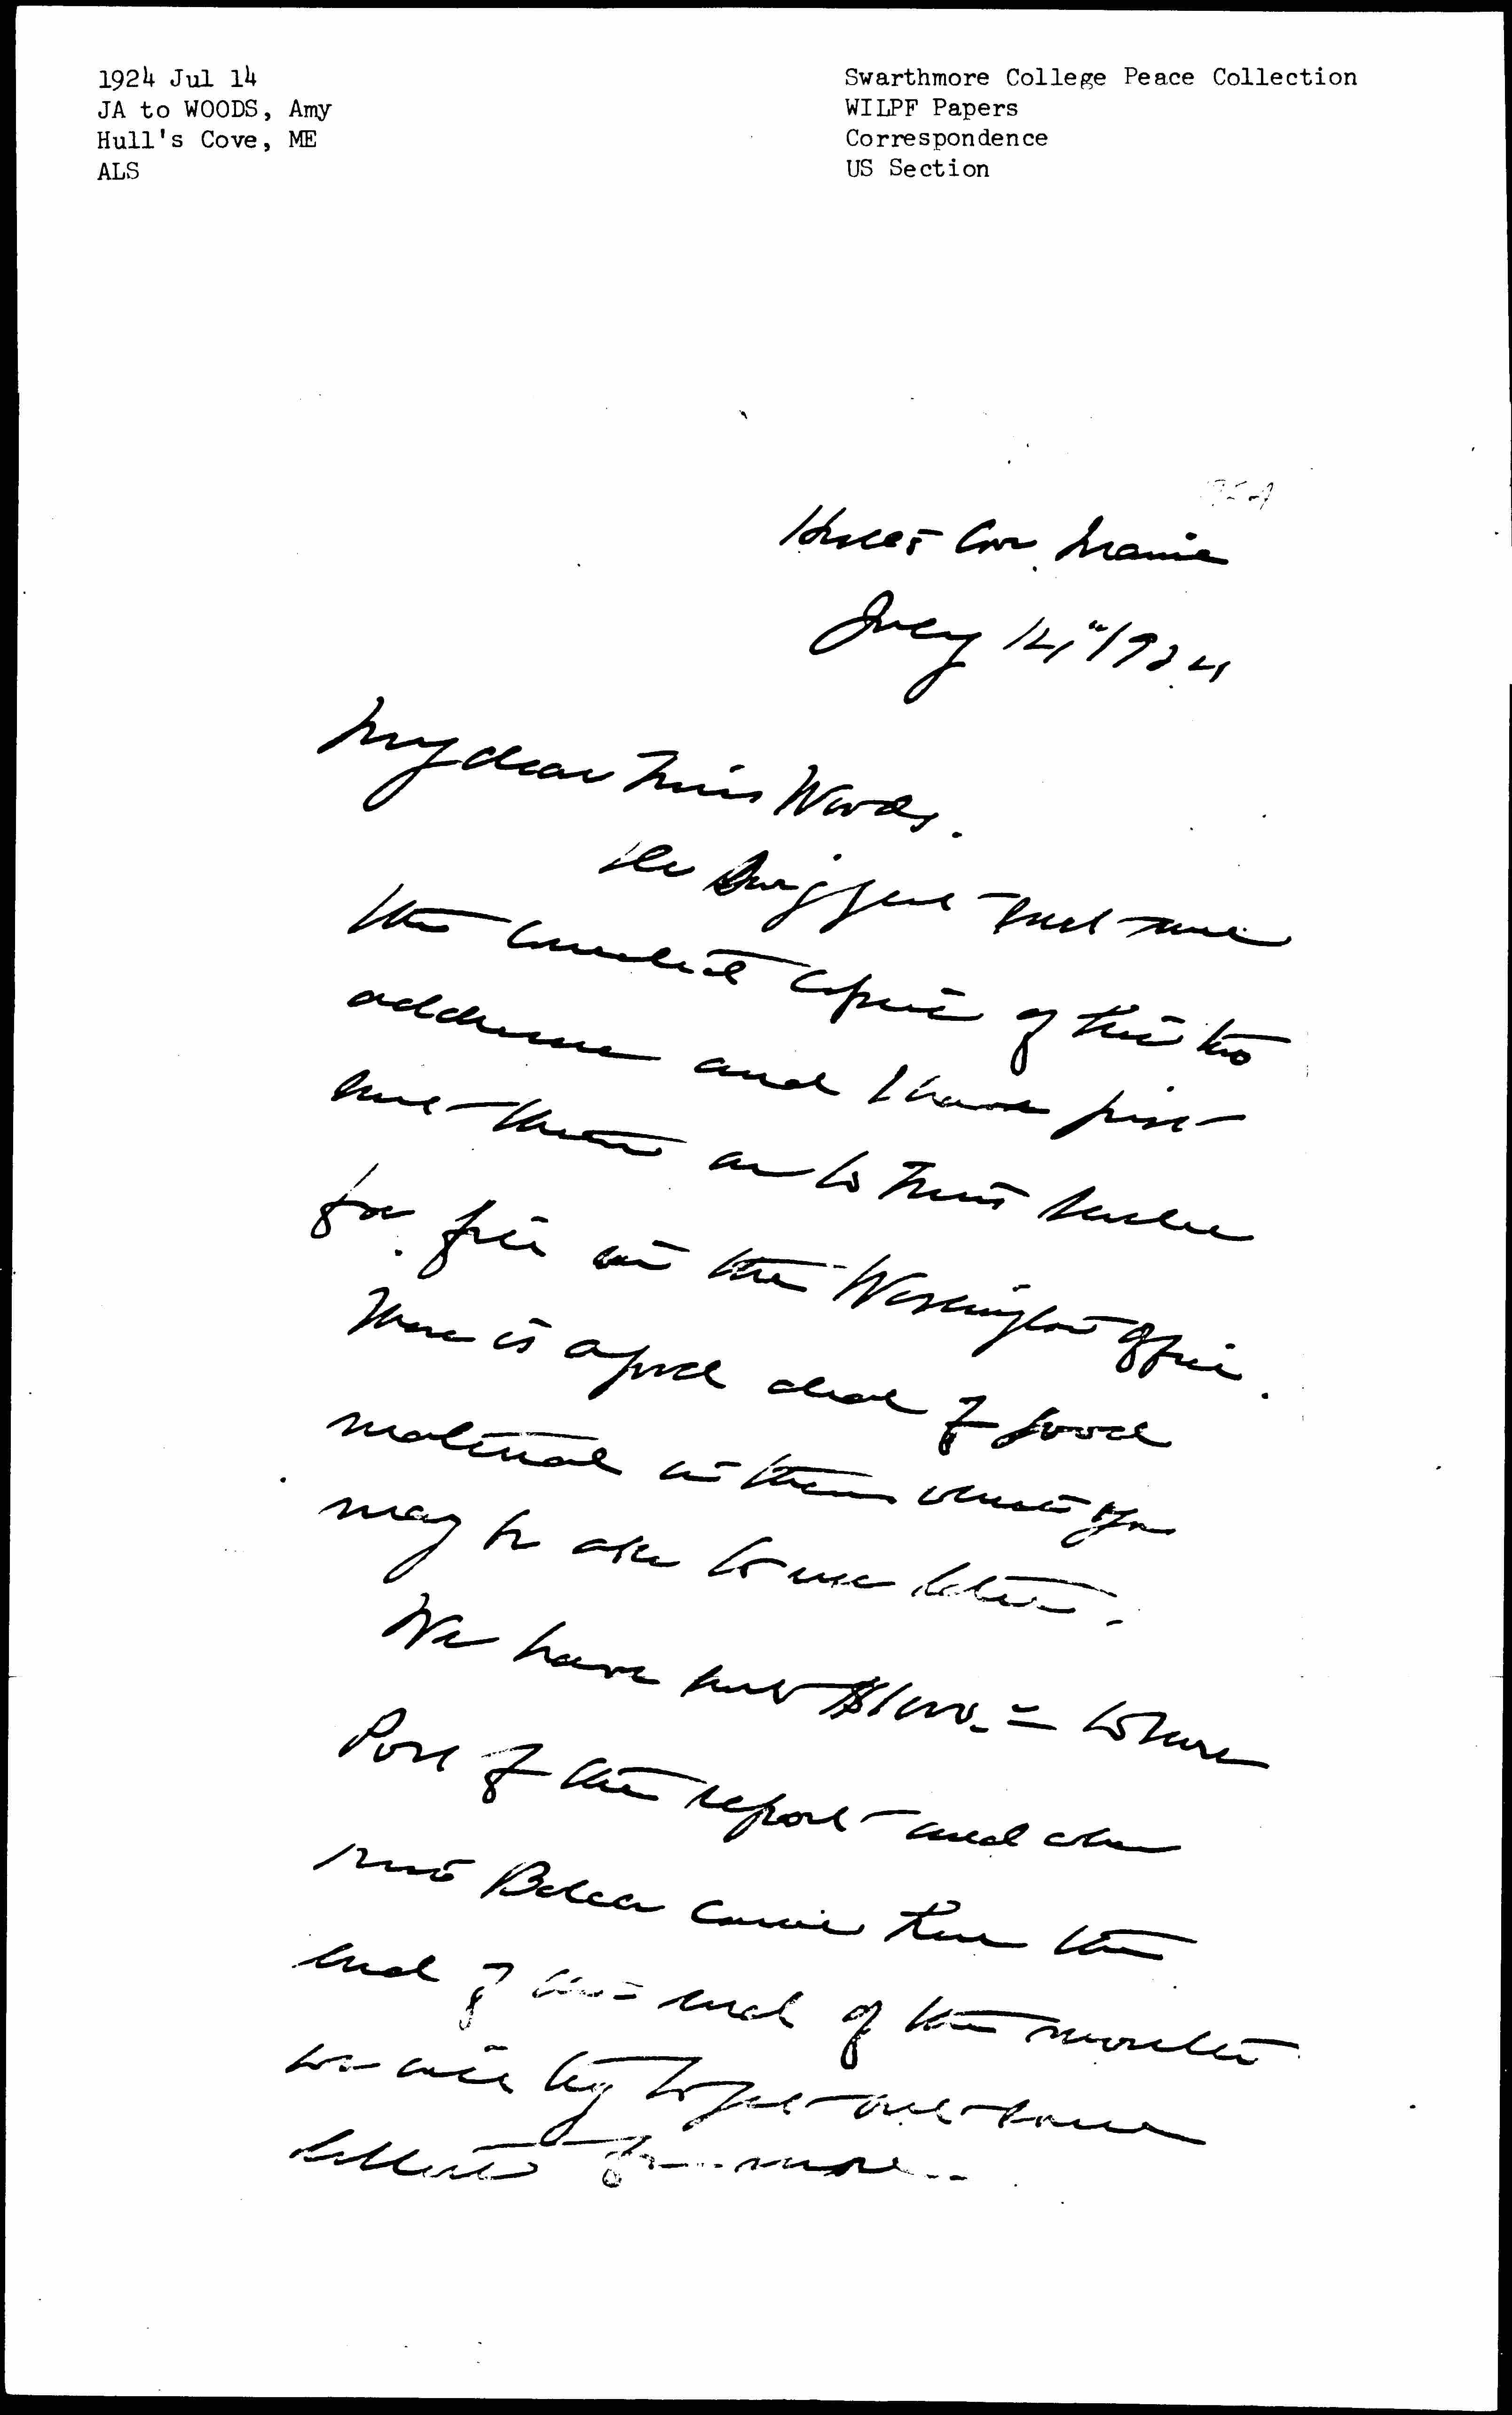 1924 Jul 14
JA to WOODS, Amy
Hull's Cove, ME
ALS
Swarthmore College Peace Collection
WILPF Papers
Correspondence
US Section
Hulls Cove Maine
July 14" 1924
My dear Miss Woods.
me
the copies of the two
addresses and I have just
sent them on to Miss
for file in the Washington office.
There is a good deal of good
material in them which you
may be able to use later.
We have
Part of the report and when
Miss Balch comes here the
end of the end of the month
we will try to get out some
letters for more.